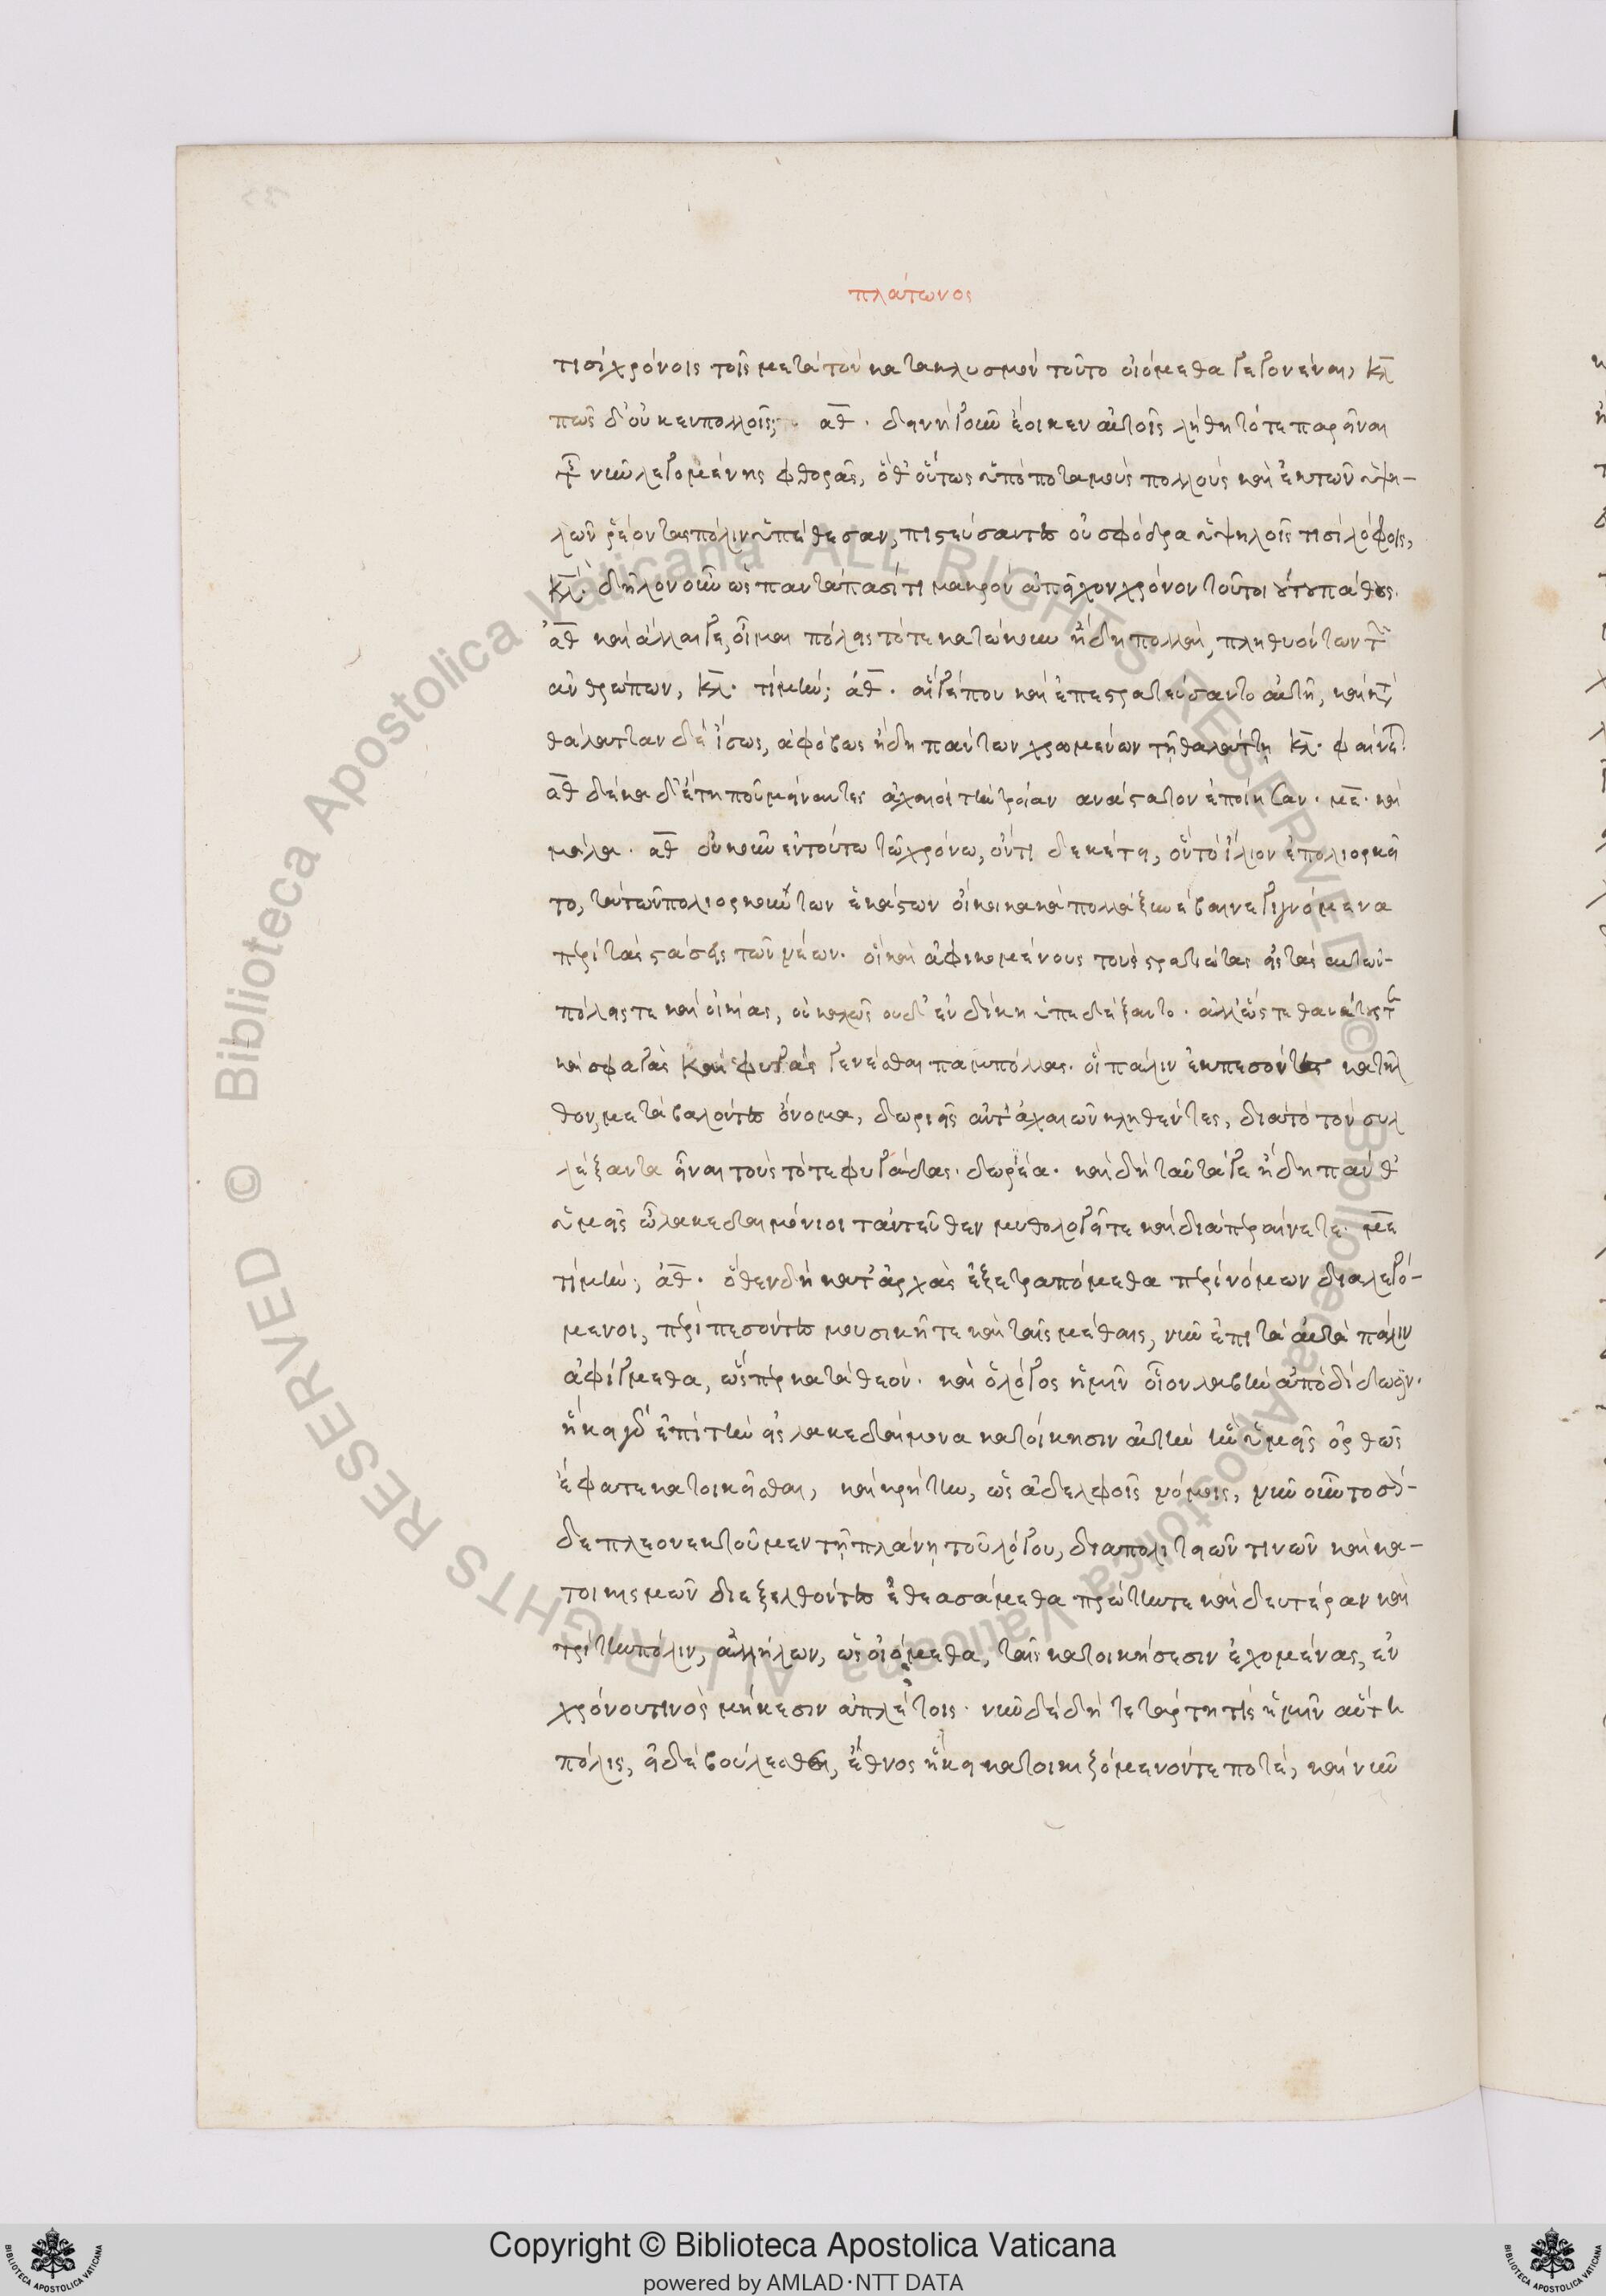 πλάτωνος
τισὶ χρόνοις τοῖς μετὰ τὸν κατακλυσμὸν τοῦτο οἰόμεθα γεγονέναι, κλ
πῶς δ' οὐκ ἐν πολλοῖς; αθ. δεινὴ γοῦν ἔοικεν αὐτοῖς λήθη τότε παρεῖναι
τῆς νῦν λεγομένης φθορᾶς, ὅθ' οὕτως ὑπὸ ποταμοὺς πολλοὺς καὶ ἐκ τῶν ὑψη-
λῶν ῥέοντας πόλιν ὑπέθεσαν, πιστεύσαντες οὐ σφόδρα ὑψηλοῖς τισὶ λόφοις,
κλ. δῆλον οὖν ὡς παντάπασί τι μακρὸν ἀπεῖχον χρόνον τοῦ τοιούτου πάθους.
αθ καὶ ἄλλαι γε, οἶμαι πόλεις τότε κατῴκουν ἤδη πολλαὶ, πληθυόντων τῶν
ἀνθρώπων, κλ. τί μήν; αθ. αἵ γέ που καὶ ἐπεστρατεύσαντο αὐτῇ, καὶ κατὰ
θάλατταν δὲ ἴσως, ἀφόβως ἤδη πάντων χρωμένων τῇ θαλάττῃ κλ. φαίνεται
αθ δέκα δ' ἔτη που μείναντες ἀχαιοὶ τὴν τροίαν ἀνάστατον ἐποίησαν. με. καὶ
μάλα. αθ οὐκοῦν ἐν τούτω τῶ χρόνω, ὄντι δεκέτει, ὃν τὸ ἴλιον ἐπολιορκεῖ
το, τὰ τῶν πολιορκούντων ἑκάστων οἴκοι κακὰ πολλὰ ξυνέβαινε γιγνόμενα
περὶ τὰς στάσεις τῶν νέων. οἳ καὶ ἀφικομένους τοὺς στρατιώτας εἰς τὰς αὐτῶν
πόλεις τε καὶ οἰκίας, οὐ καλῶς οὐδ' ἐν δίκη ὑπεδέξαντο. ἀλλ' ὥστε θανάτους τε
καὶ σφαγὰς καὶ φυγὰς γενέσθαι παμπόλλας. οἳ πάλιν ἐκπεσόντες κατῆλ
θον, μεταβαλόντες ὄνομα, δωριεῖς ἀντ' ἀχαιῶν κληθέντες, διὰ τὸ τὸν συλ
λέξαντα εἶναι τοὺς τότε φυγάδας. δωριέα. καὶ δὴ ταῦτά γε ἤδη πάνθ'
ὑμεῖς ὦ λακεδαιμόνιοι τἀντεῦθεν μυθολογεῖτε καὶ διαπεραίνετε. με
τί μήν; αθ. ὅθεν δὴ κατ' ἀρχὰς ἐξετραπόμεθα περὶ νόμων διαλεγό-
μενοι, περιπεσόντες μουσικῇ τε καὶ ταῖς μέθαις, νῦν ἐπὶ τὰ αὐτὰ πάλιν
ἀφίγμεθα, ὥσπερ κατὰ θεόν. καὶ ὁ λόγος ἡμῖν οἷον λαβὴν ἀποδίδωσιν.
ἥκει γὰρ ἐπὶ τὴν εἰς λακεδαίμονα κατοίκησιν αὐτὴν ἣν ὑμεῖς ὀρθῶς
ἔφατε κατοικεῖσθαι, καὶ κρήτην, ὡς ἀδελφοῖς νόμοις, νῦν οὖν τοσό-
δε πλεονεκτοῦμεν τῇ πλάνῃ τοῦ λόγου, διὰ πολιτειῶν τινῶν καὶ κα-
τοικισμῶν διεξελθόντες ἐθεασάμεθα πρώτην τε καὶ δευτέραν καὶ
τρίτην πόλιν, ἀλλήλων, ὡς οἰόμεθα, ταῖς κατοικήσεσιν ἐχομένας, ἐν
χρόνου τινὸς μήκεσιν ἀπλέτοις. νῦν δὲ δὴ τετάρτη τὶς ἡμῖν αὕτη
πόλις, εἰ δὲ βούλεσθε, ἔθνος ἥκει κατοικιζόμενόν τε ποτὲ, καὶ νῦν